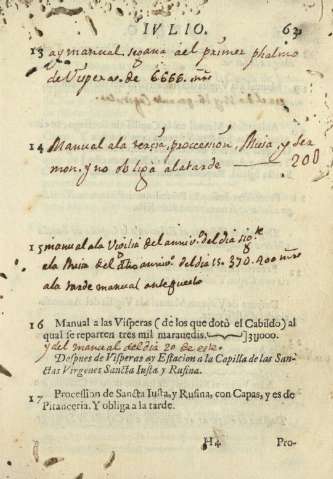 IVLIO. 63
13 ay manual segana a el primer phalmo
de Visperas. de 6666. mrs
14 Manual a la tercia, proccession, Misa, y ser
mon. y no obliga a la tarde
200
15 manual a la Vigilia del anniv.º del dia sigte
a la Misa del dho anniv.º del dia 15. 370. 200 mrs
a la tarde manual
16 Manual a las Visperas (de los que dotò el Cabildo) al
qual se reparten tres mil marauedis. ]3U000.
y del manual del dia 20 de este.
Despues de Visperas ay Estacion a la Capilla de las San-
ctas Virgenes Sancta Iusta y Rufina.
17 Procession de Sancta Iusta, y Rufina, con Capas, y es de
Pitanceria. Y obliga a la tarde.
H4 Pro-